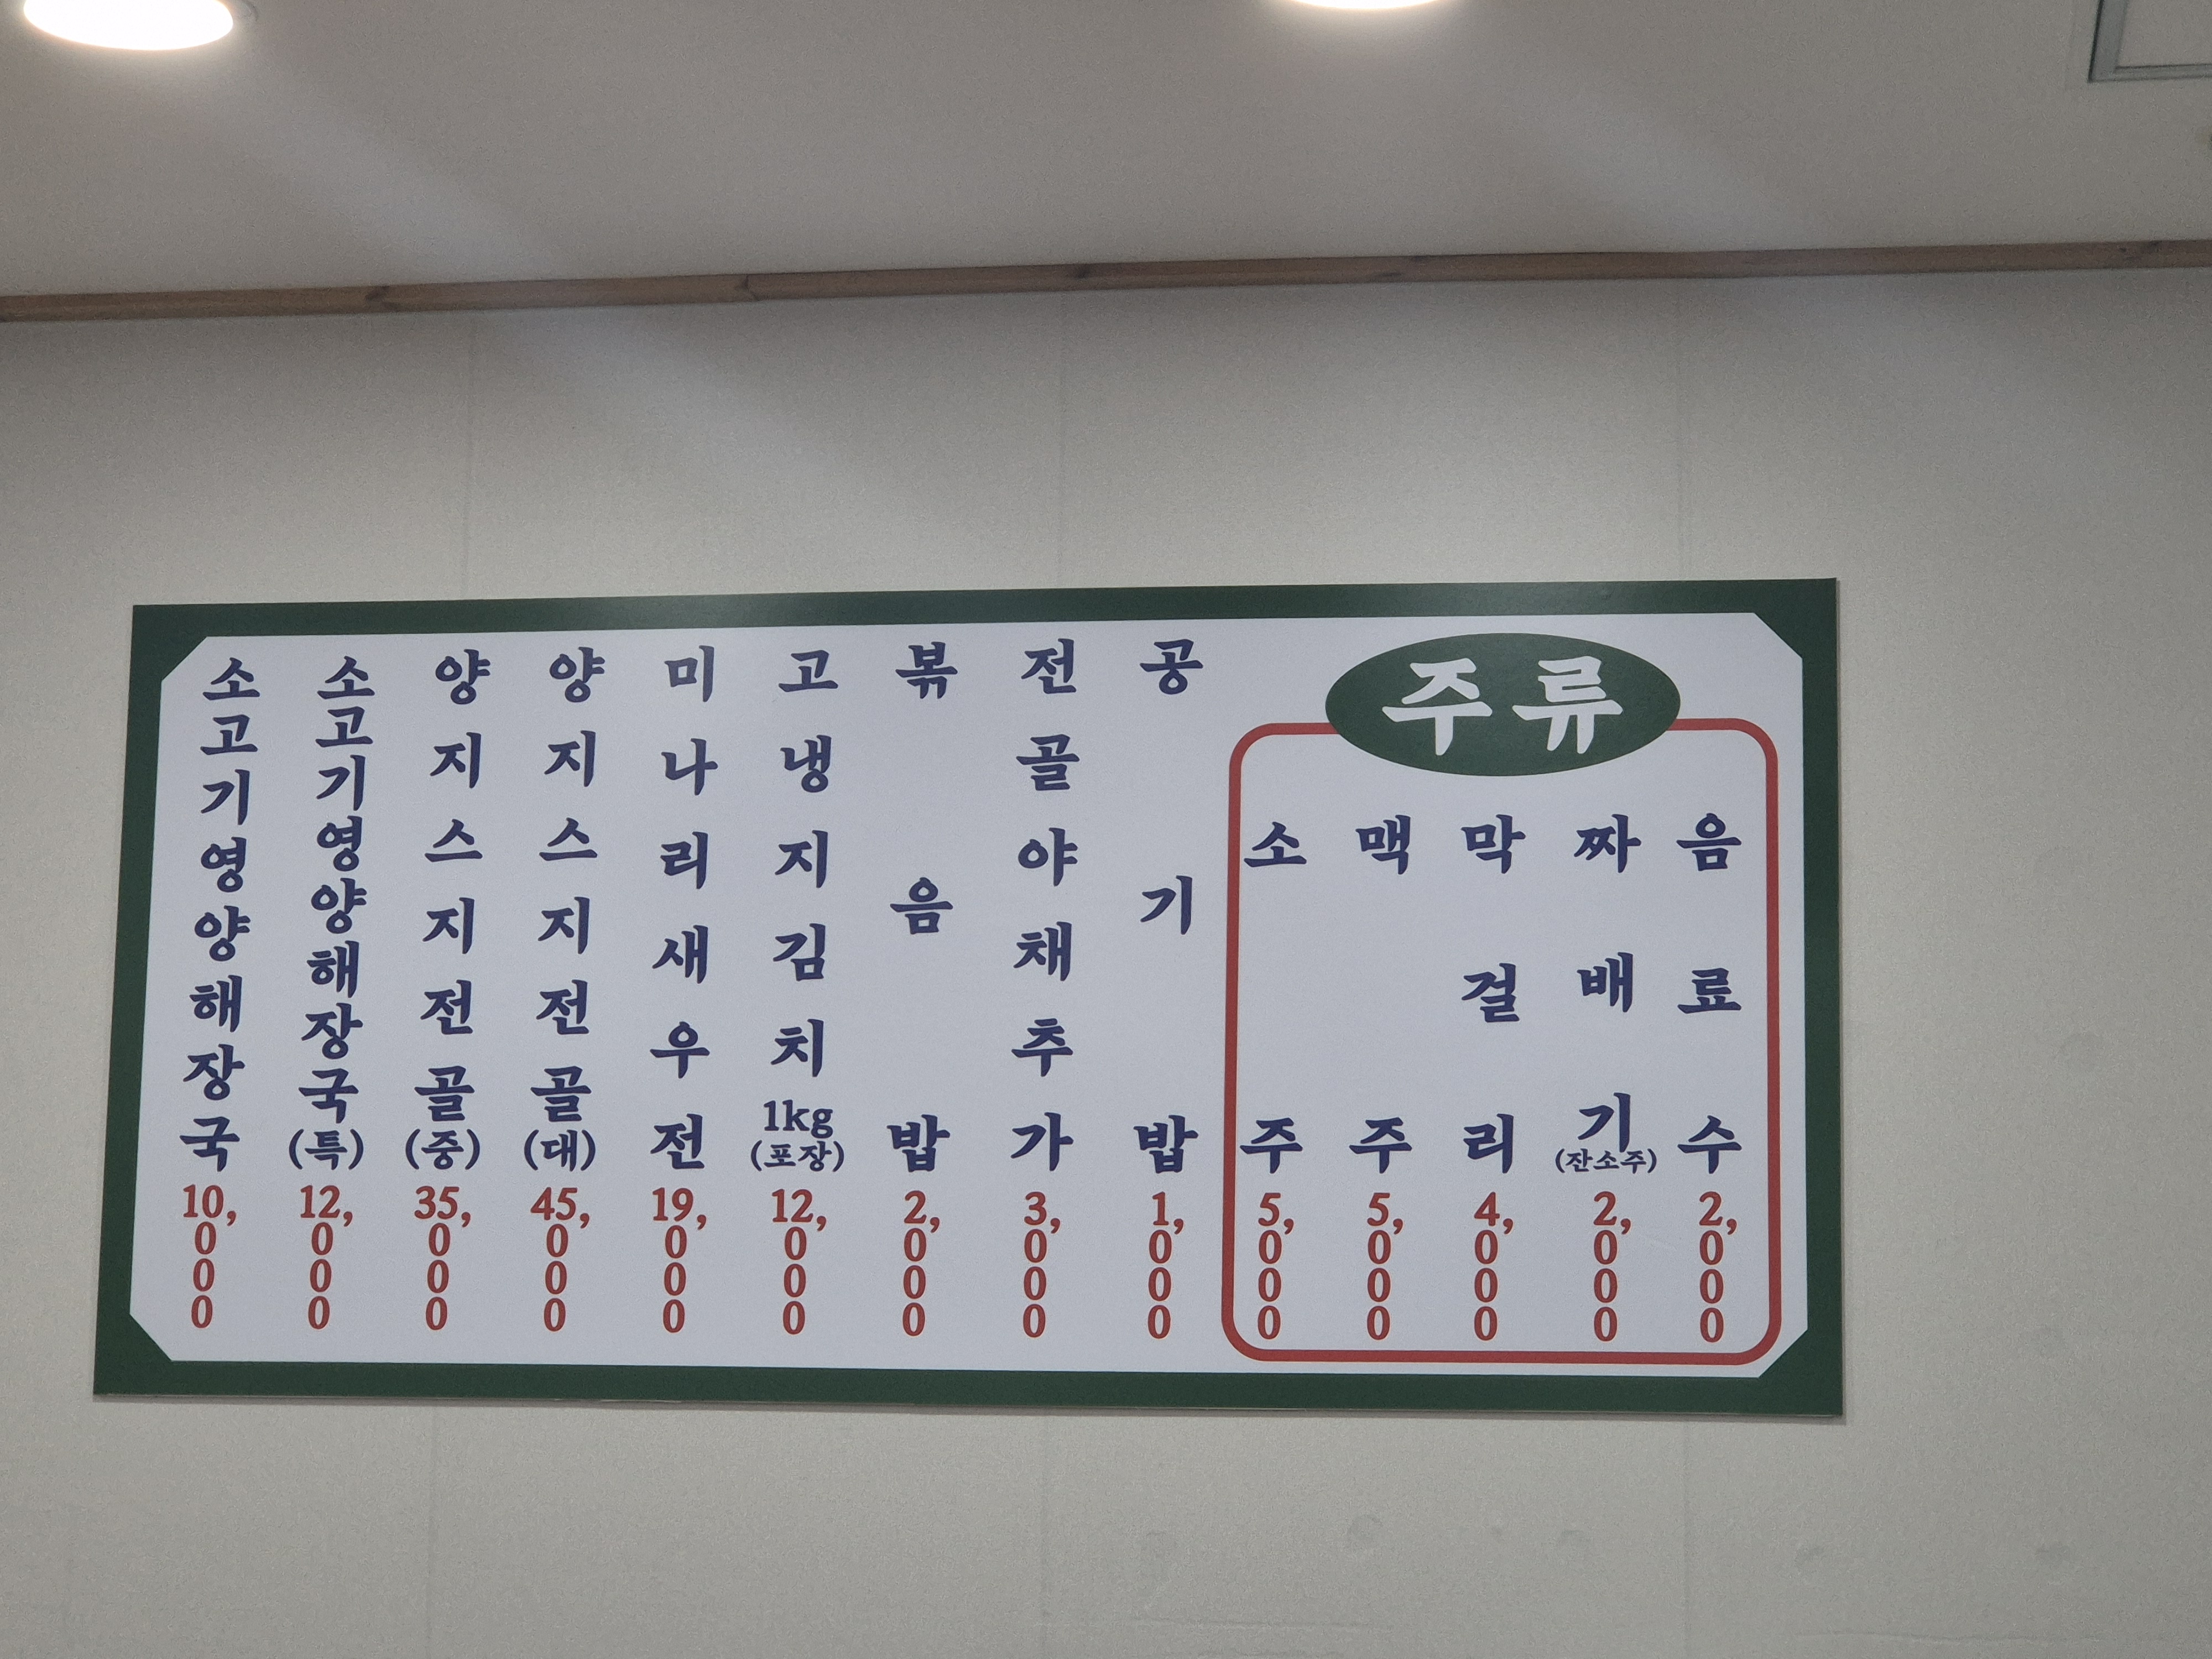 소고기영양해장국 10,000
소고기영양해장국(특) 12,000
양지스지전골(중) 35,000
양지스지전골(대) 45,000
미나리새우전 19,000
고냉지김치 1kg (포장) 12,000
볶음밥 2,000
전골야채추가 3,000
공기밥 1,000
주류
소주 5,000
맥주 5,000
막걸리 4,000
짜배기 (잔소주) 2,000
음료수 2,000